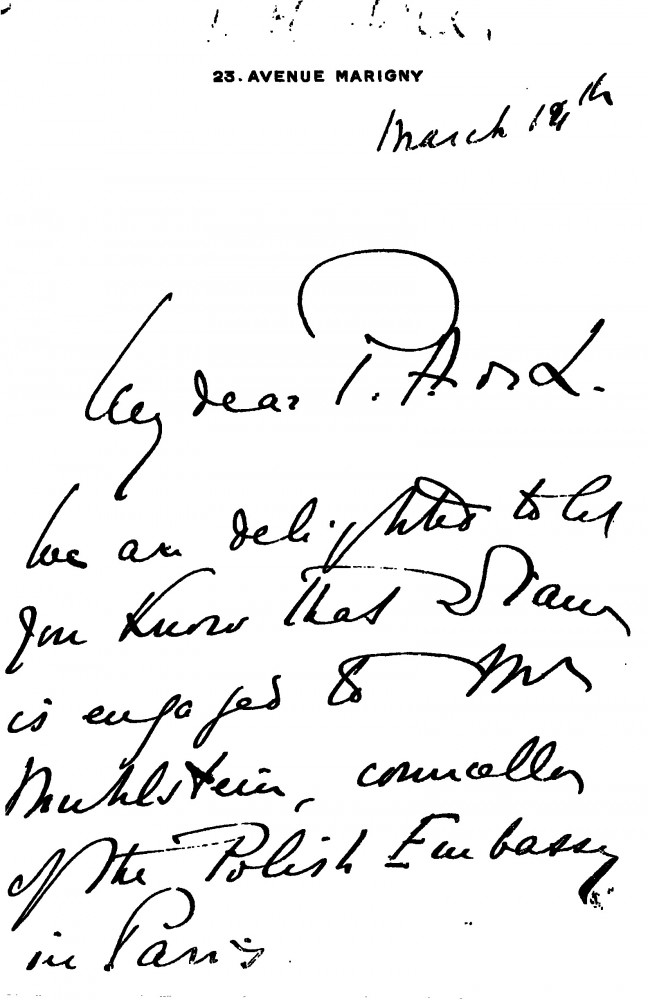 23. AVENUE MARIGNY
March 14th
My dear P. A and L.
We are delighted to let
you know that Diane
is engaged to Mr
Muhlstein, councellor
of the Polish Embassy
in Paris